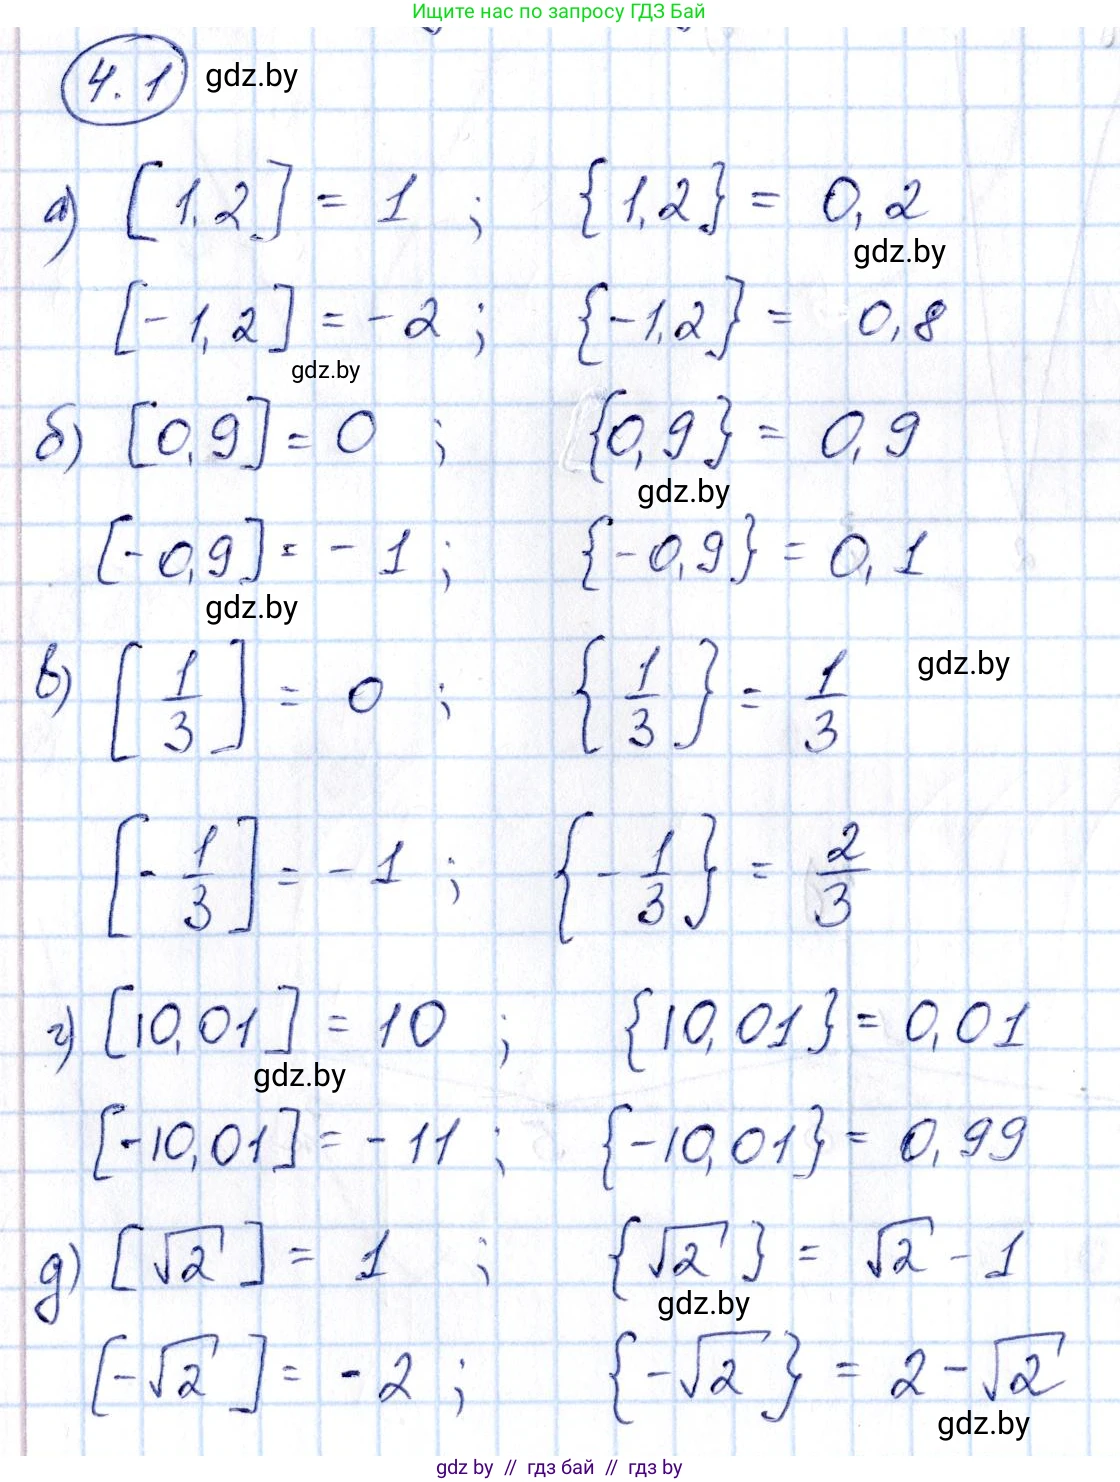 Ищите нас по запросу ГДЗ Бай
4.1 gdz.by
а) [1,2] = 1 ; {1,2} = 0,2
gdz.by
[-1,2] = -2 ; {-1,2} = 0,8
gdz.by
б) [0,9] = 0 ; {0,9} = 0,9
gdz.by
[-0,9] = -1 ; {-0,9} = 0,1
gdz.by
в) [1/3] = 0 ; {1/3} = 1/3 gdz.by
[-1/3] = -1 ; {-1/3} = 2/3
г) [10,01] = 10 ; {10,01} = 0,01
gdz.by
[-10,01] = -11 ; {-10,01} = 0,99
д) [√2] = 1 ; {√2} = √2 - 1
gdz.by
[-√2] = -2 ; {-√2} = 2 - √2
gdz.by
gdz by // гдз бай // гдз by